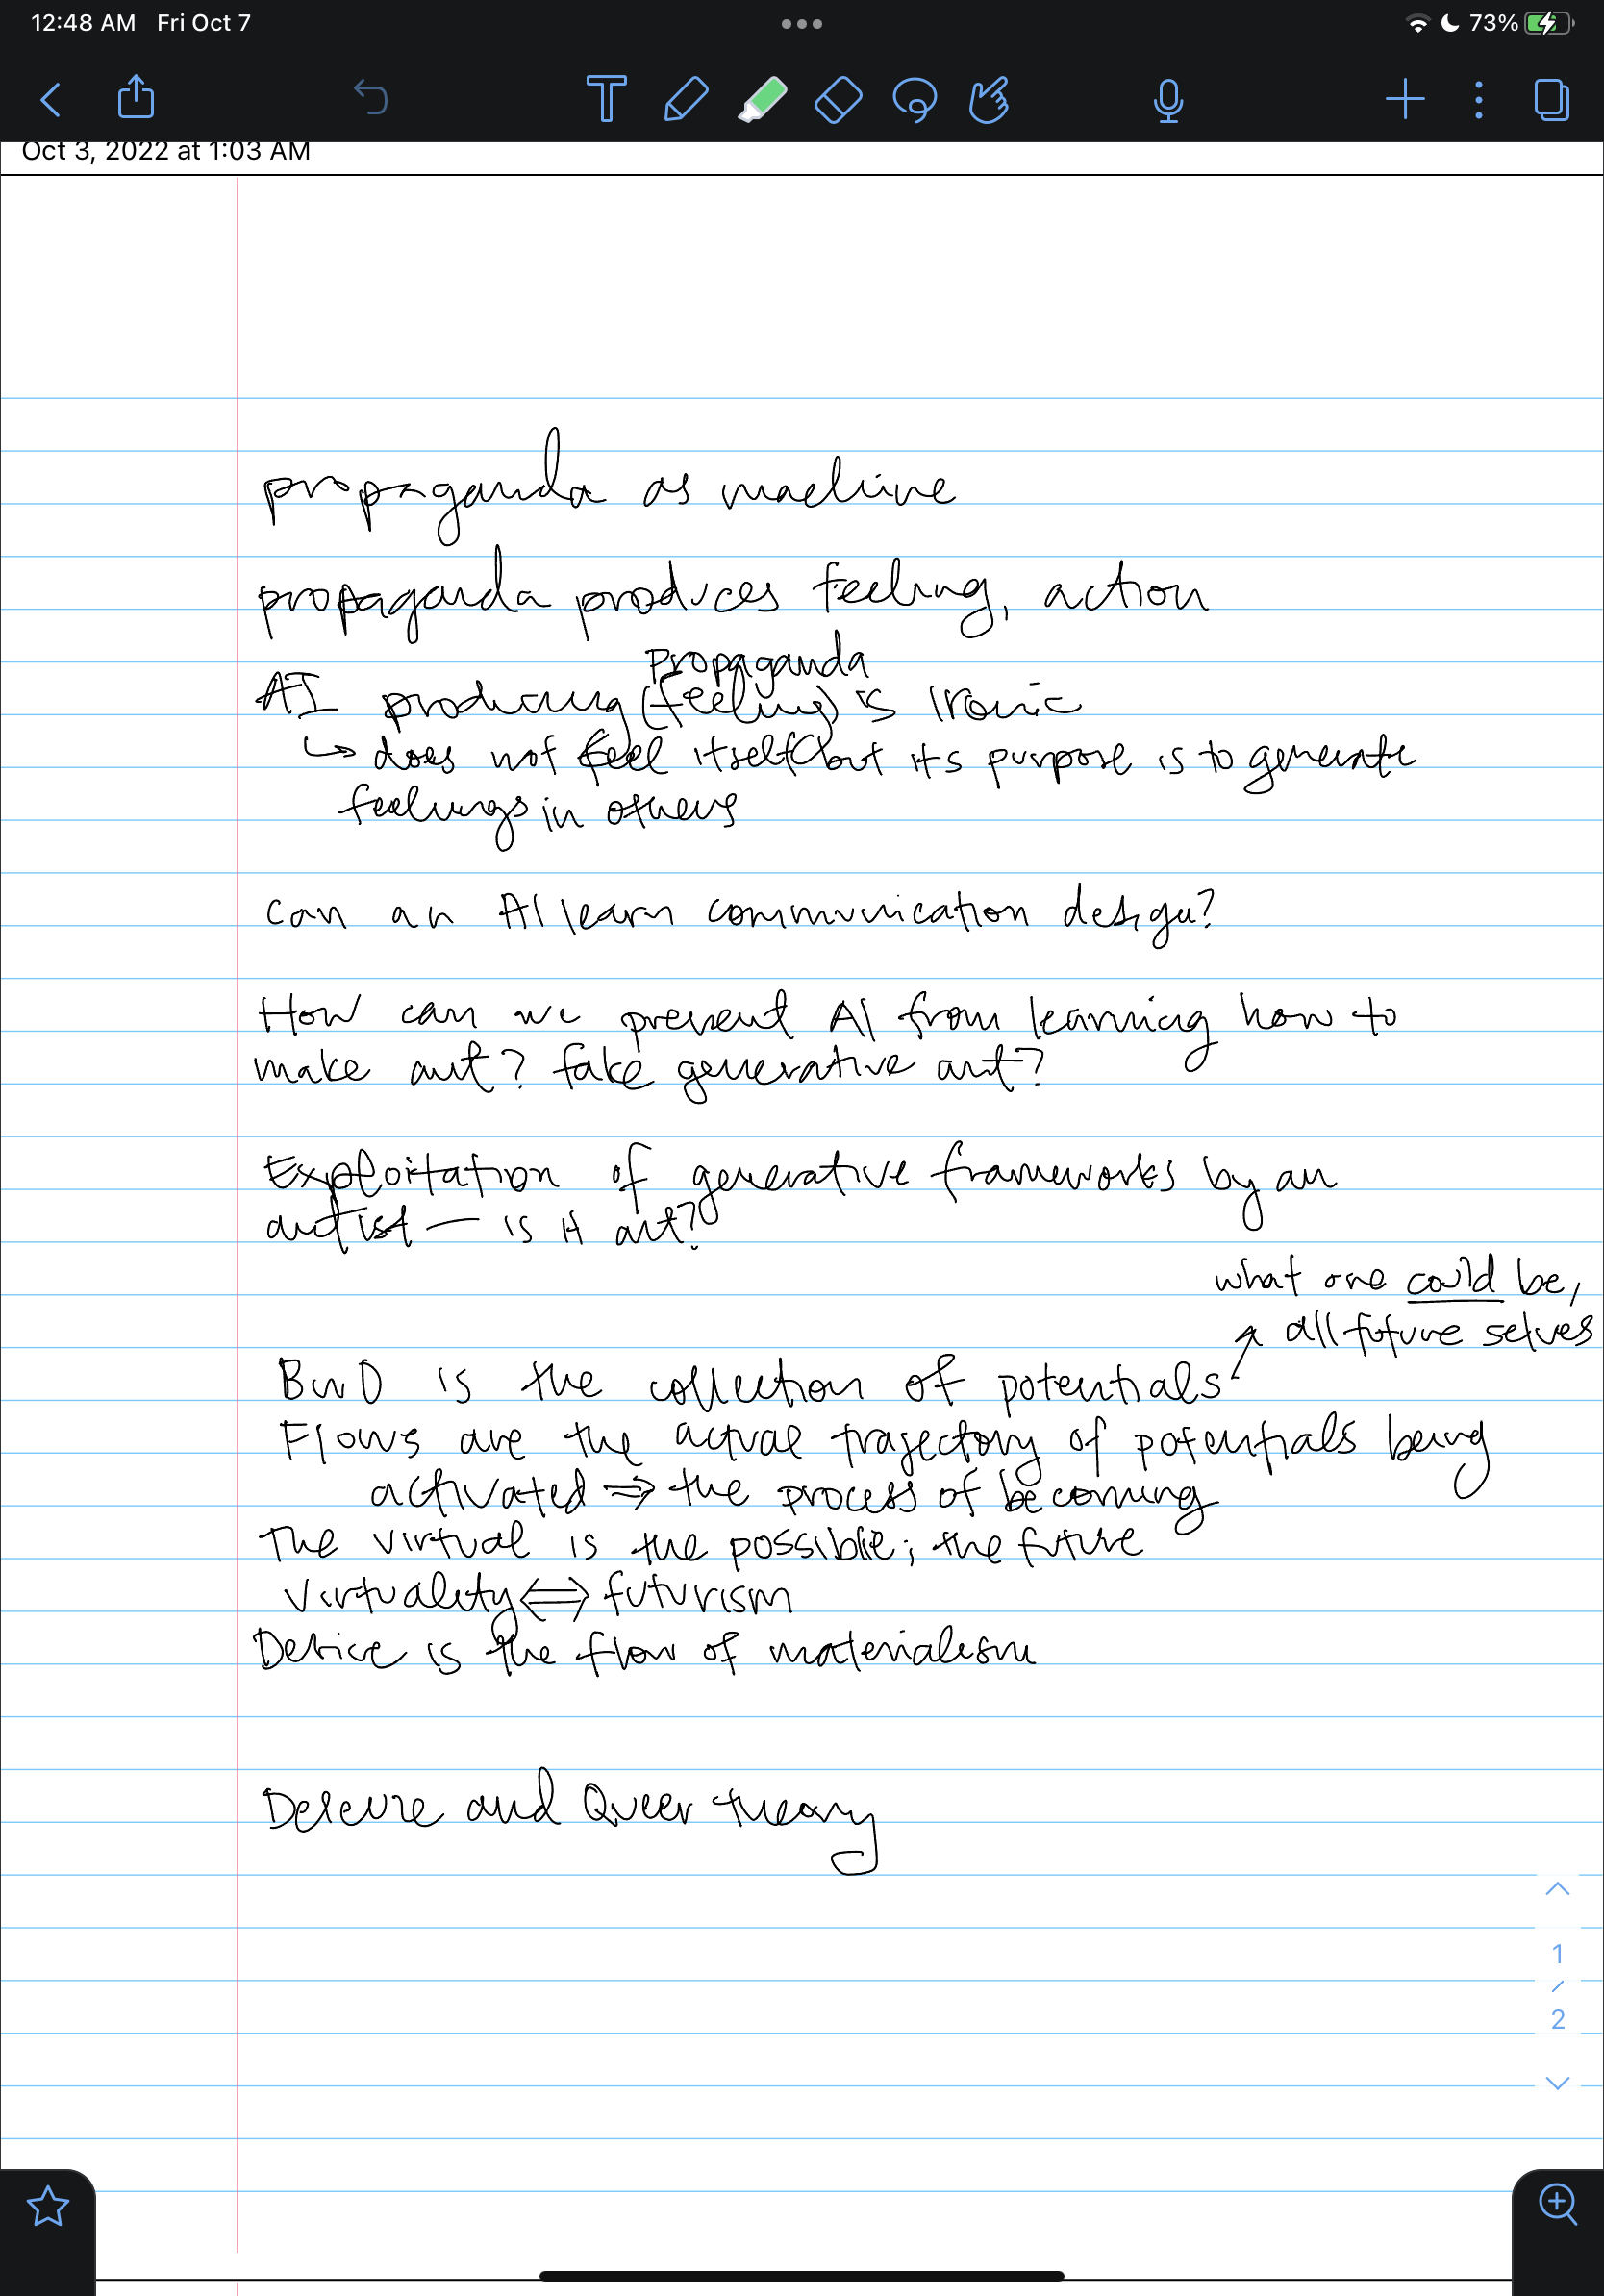 12:48 AM Fri Oct 7
73%
Oct 3, 2022 at 1:03 AM
propaganda as machine
propaganda produces feeling, action
propaganda
AI producing (feeling) is ironic
↳ does not feel itself but its purpose is to generate
feelings in others
can an AI learn communication design?
How can we prevent AI from learning how to
make art? fake generative art?
Exploitation of generative frameworks by an
artist — is it art?
what one could be,
all future selves
BwO is the collection of potentials
Flows are the actual trajectory of potentials being
activated ⇒ the process of becoming
The virtual is the possible; the future
Virtuality ⇔ futurism
is the flow of materialism
Deleuze and Queer theory
1
/
2